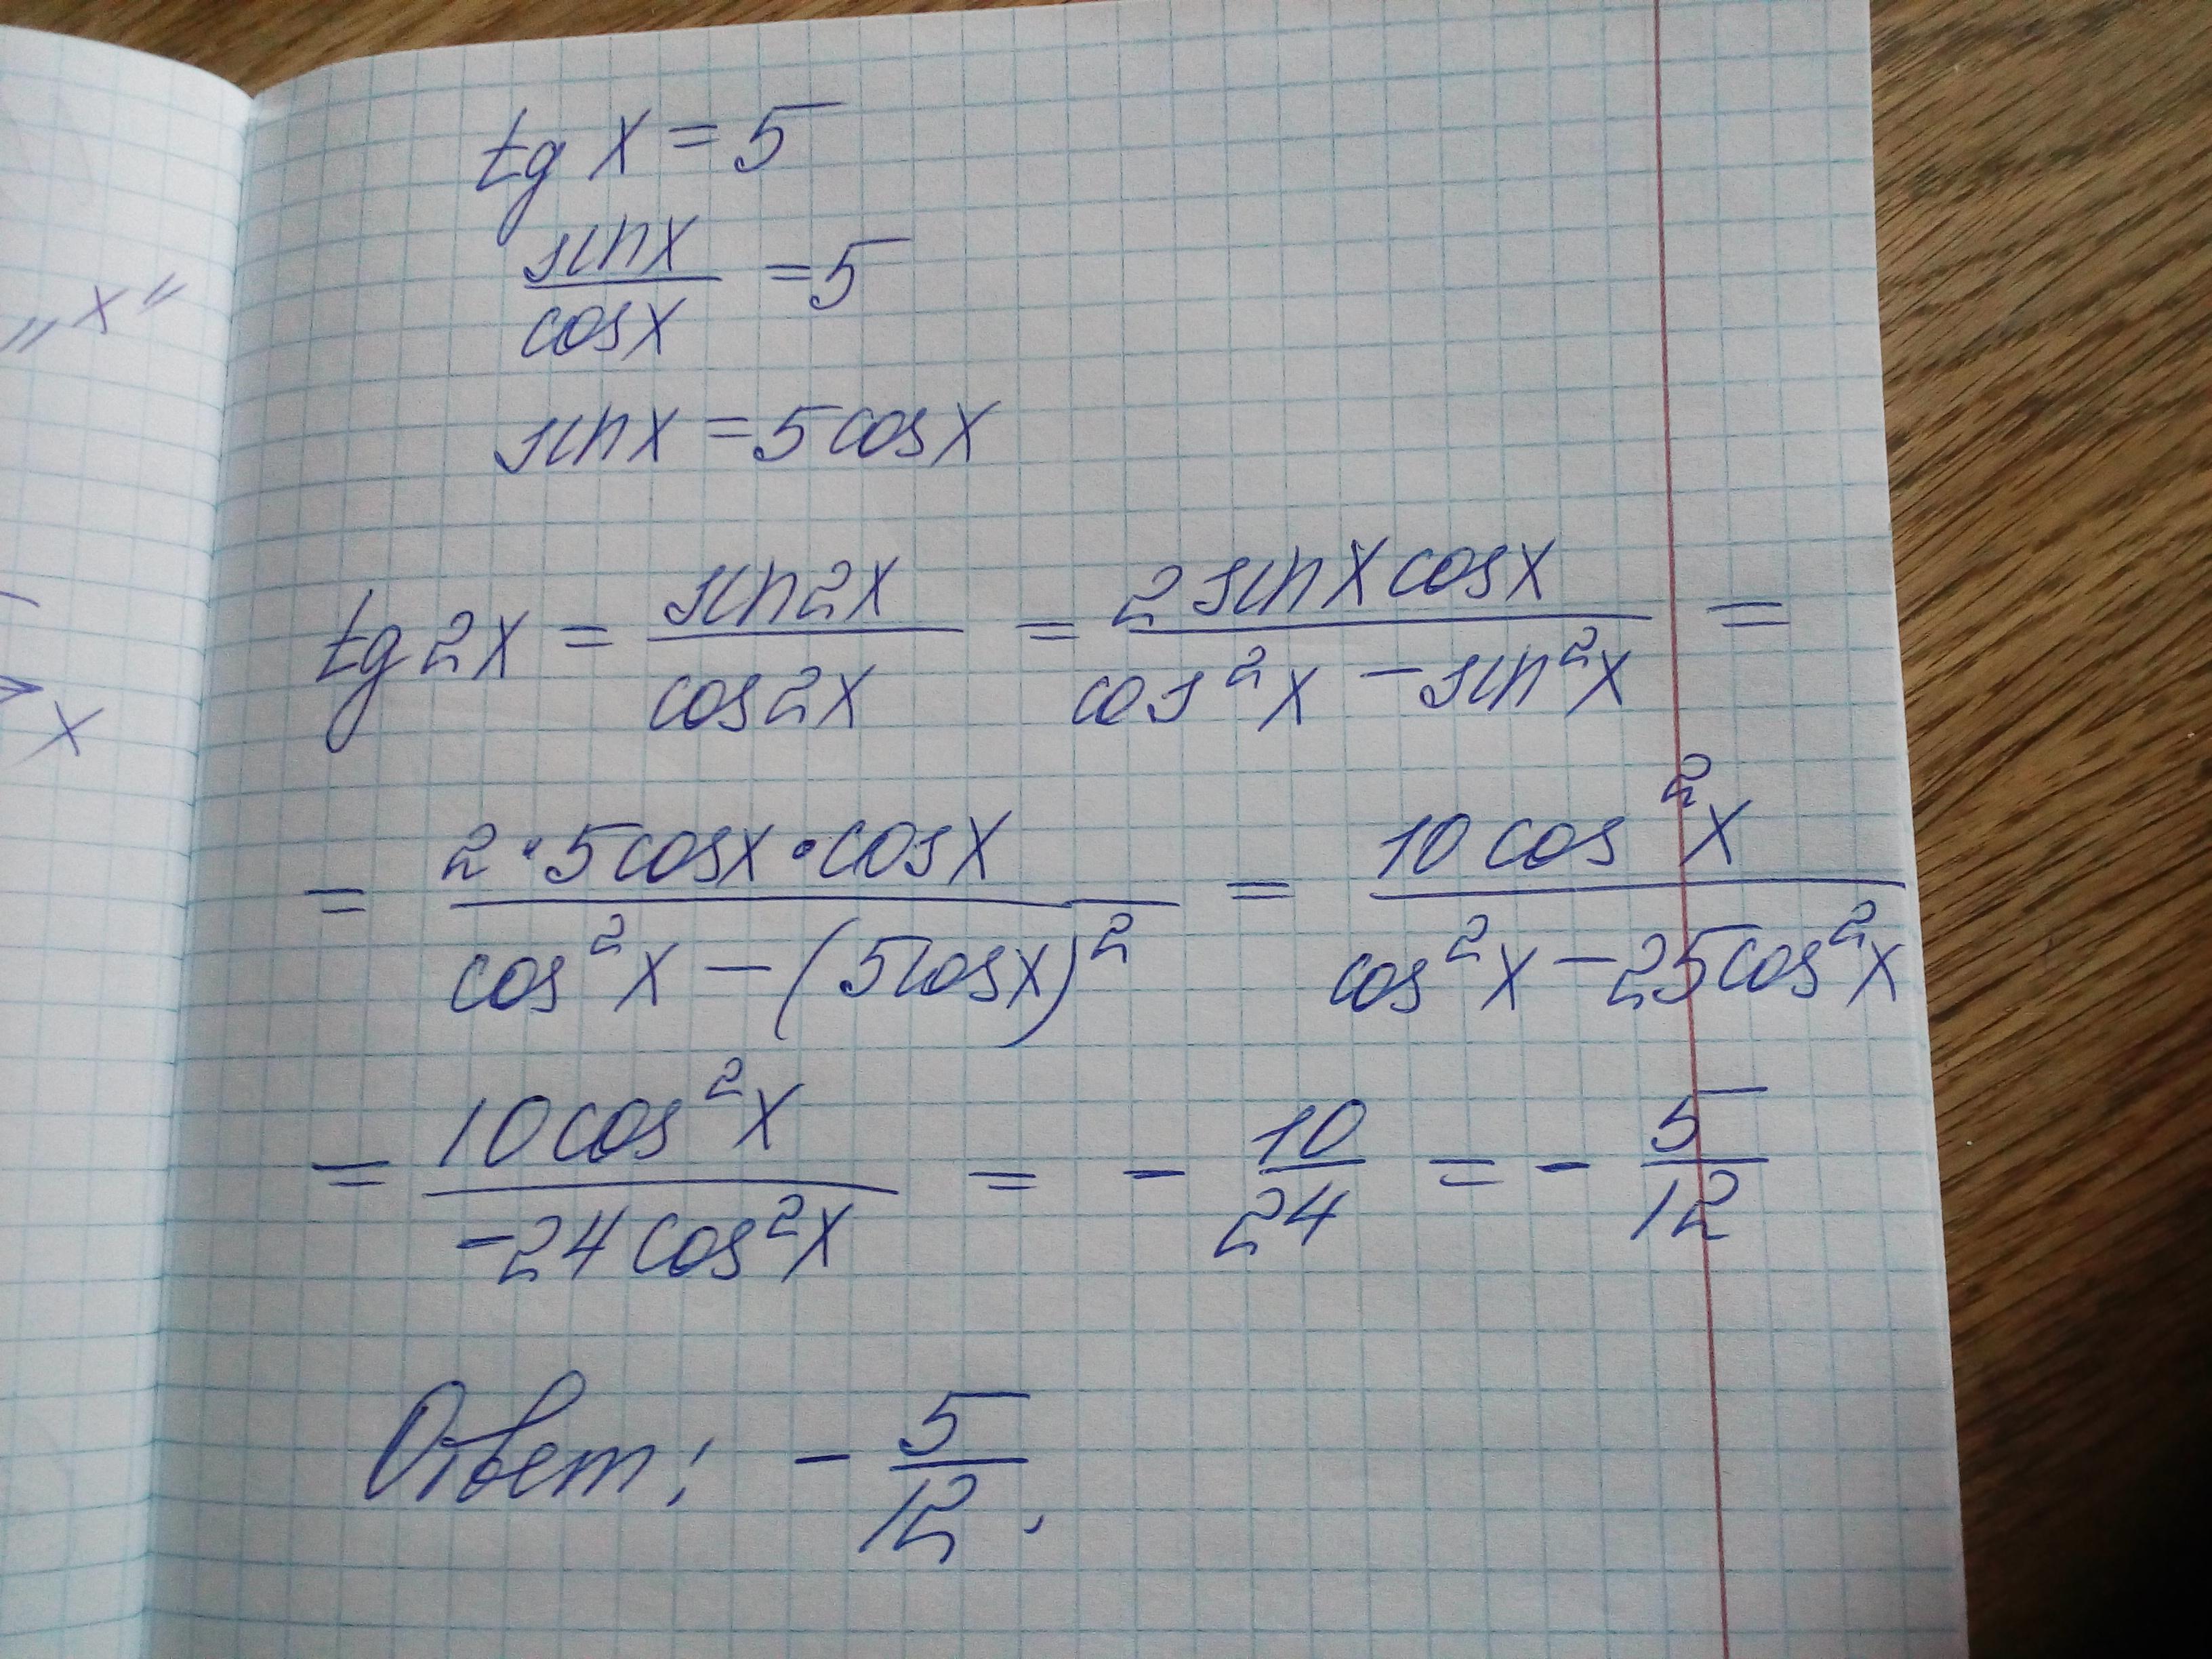 „x“
x
tg x = 5
sin x / cos x = 5
sin x = 5 cos x
tg 2x = sin 2x / cos 2x = 2 sin x cos x / cos²x − sin²x =
= 2 · 5 cos x · cos x / cos²x − (5 cos x)² = 10 cos²x / cos²x − 25 cos²x
= 10 cos²x / −24 cos²x = − 10/24 = − 5/12
Ответ: − 5/12.